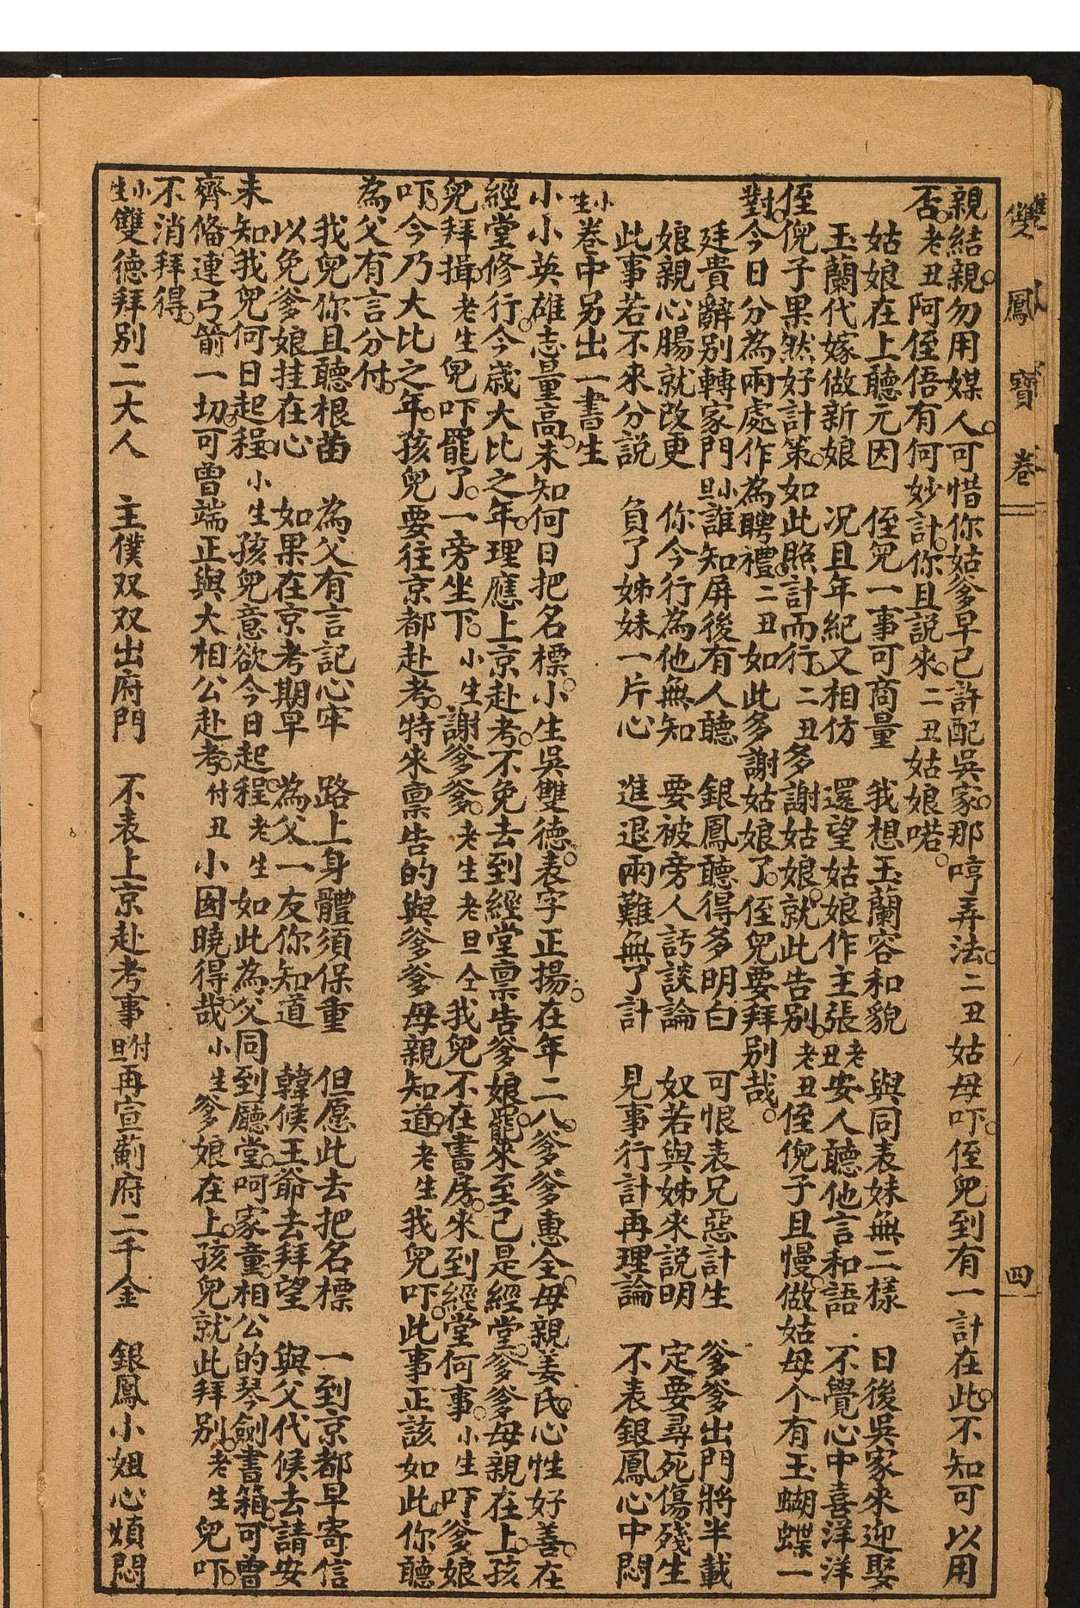 雙鳳寶卷
四
親結親。勿用媒人。可惜你姑爹早已許配吳家。那哼弄法。二丑姑母吓。侄兒到有一計在此。不知可以用
否。老丑阿侄俉有何妙計。你且說來。二丑姑娘喏。
姑娘在上聽元因　侄兒一事可商量　我想玉蘭容和貌　與同表妹無二樣　日後吳家來迎娶
玉蘭代嫁做新娘　况且年紀又相仿　還望姑娘作主張老丑安人聽他言和語　不覺心中喜洋洋
侄倪子果然好計策。如此照計而行。二丑多謝姑娘。就此告別。老丑侄倪子且慢。做姑母个有玉蝴蝶一
對。今日分為兩處作為聘禮。二丑如此多謝姑娘了。侄兒要拜別哉。
廷貴辭別轉家門小旦誰知屏後有人聽　銀鳳聽得多明白　可恨表兄惡計生　爹爹出門將半載
娘親心腸就改更　你今行為他無知　要被旁人訪談論　奴若與姊來說明　定要尋死傷殘生
此事若不來分說　負了姊妹一片心　進退兩難無了計　見事行計再理論　不表銀鳳心中悶
小生卷中另出一書生
小小英雄志量高。未知何日把名標。小生吳雙德。表字正揚。在年二八。爹爹惠全。母親姜氏。心性好善。在
經堂修行。今歲大比之年。理應上京赴考。不免去到經堂禀告爹娘。罷。來至已是經堂。爹爹母親在上。孩
兒拜揖。老生兒吓罷了。一旁坐下。小生謝爹爹。老生老旦仝我兒不在書房。來到經堂何事。小生吓爹娘
吓。今乃大比之年。孩兒要往京都赴考。特來禀告的與爹爹母親知道。老生我兒吓。此事正該如此你聽
為父有言分付。
我兒你且聽根苗　為父有言記心牢　路上身體須保重　但愿此去把名標　一到京都早寄信
以免爹娘挂在心　如果在京考期早　為父一友你知道　韓侯王爺去拜望　與父代候去請安
未知我兒何日起程。小生孩兒意欲今日起程。老生如此為父同到廳堂。呵家童相公的琴劍書箱。可曾
齊俻連弓箭一切可曾端正與大相公赴考。付丑小囡曉得哉。小生爹娘在上。孩兒就此拜別。老生兒吓。
不消拜得。
小生雙德拜別二大人　主僕双双出府門　不表上京赴考事付旦再宣薊府二千金　銀鳳小姐心煩悶